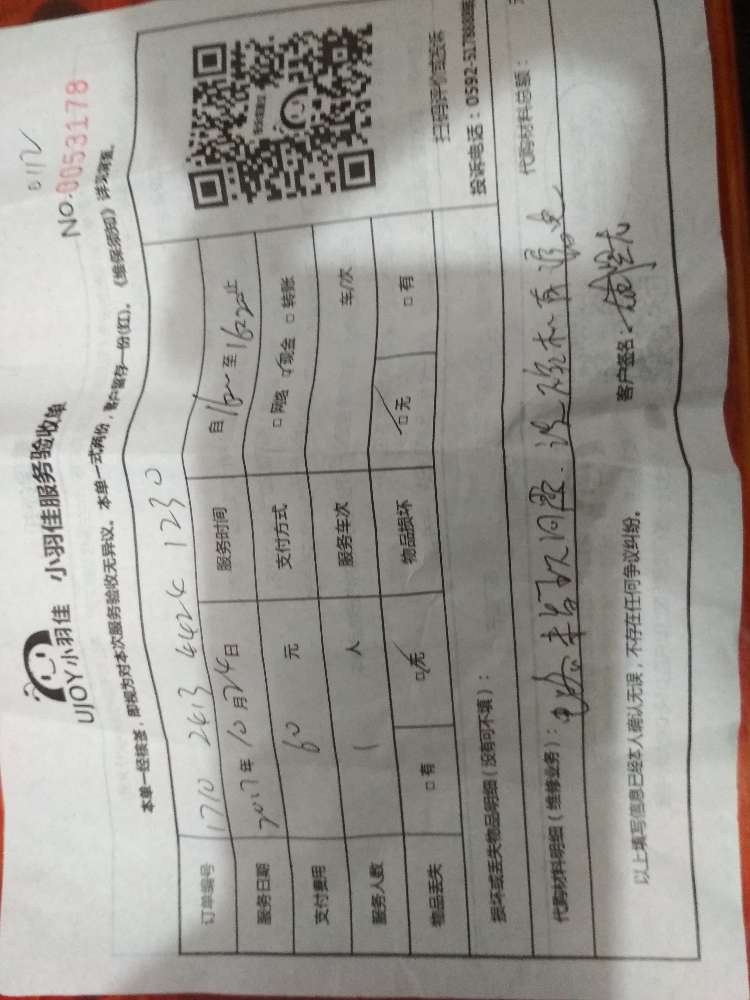 0112
No.0053178
UJOY小羽佳 小羽佳服务验收单
本单一经核签，即视为对本次服务验收无异议。本单一式两份，客户留存一份(红)。《维保须知》详见背面。
订单编号 1710 2413 4424 1230
服务日期 2017年10月24日 服务时间 自 至 止
支付费用 60 元 支付方式 □网络 ☑现金 □转账
服务人数 1 人 服务车次 车/次
物品丢失 □有 ☑无 物品损坏 ☑无 □有
扫码评价或投诉
投诉电话：0592-5178888
损坏或丢失物品明细（没有可不填）：
代购材料明细（维修业务）： 代购材料总额：
以上填写信息已经本人确认无误，不存在任何争议纠纷。
客户签名：